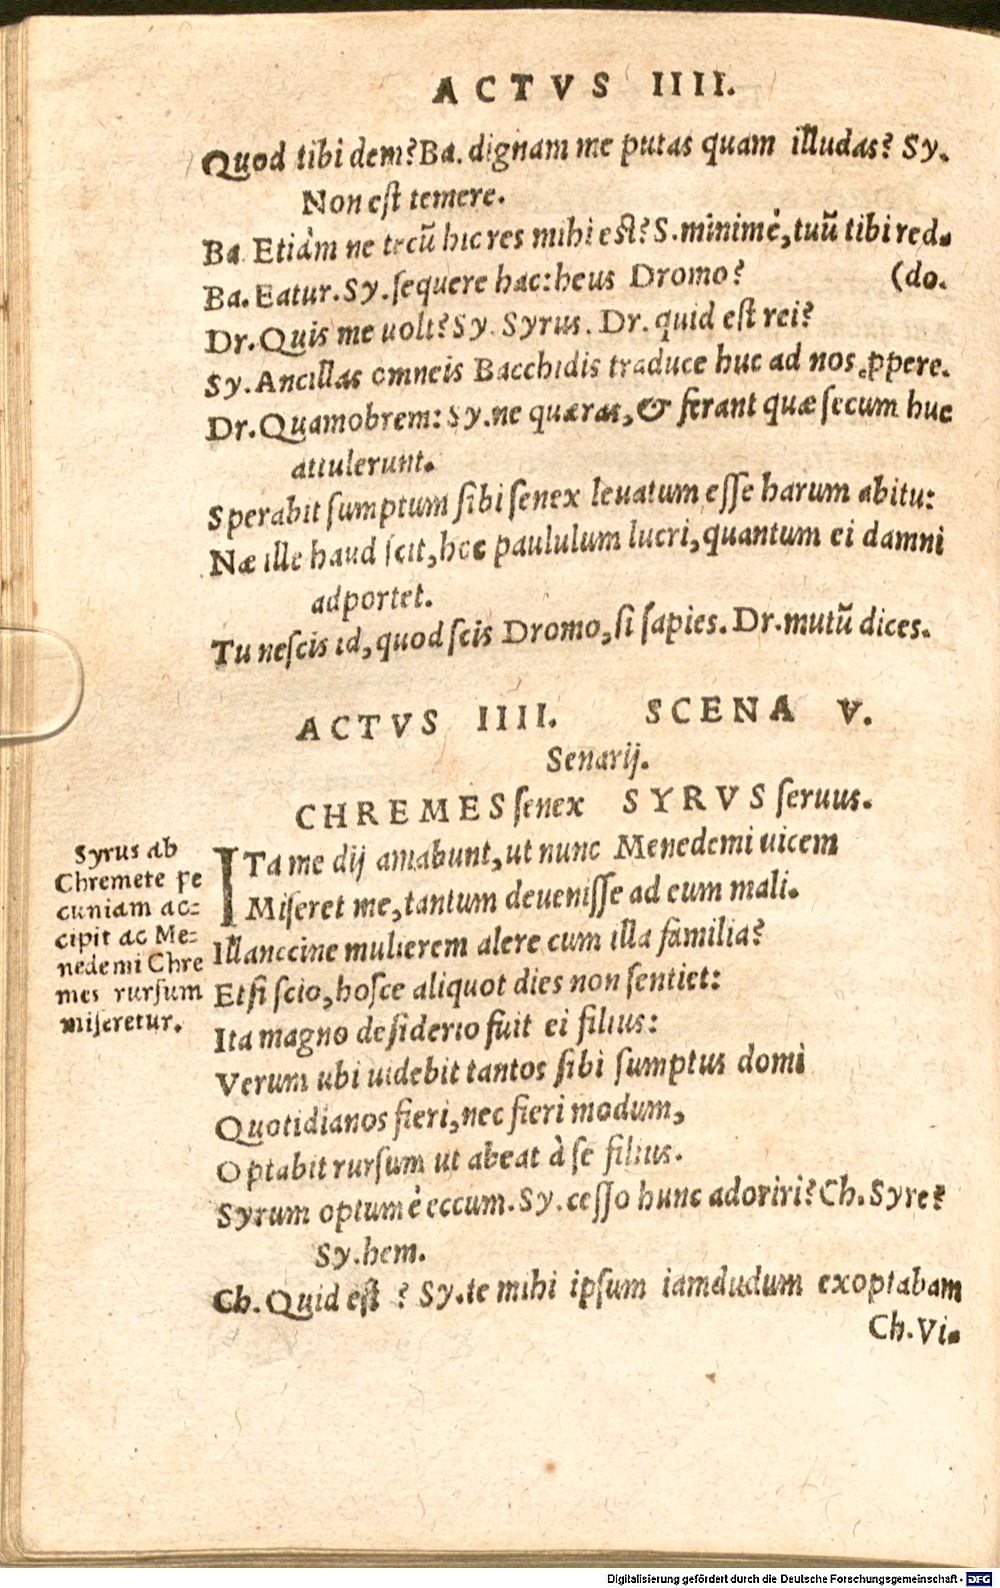 ACTVS IIII.
Quod tibi dem? Ba. dignam me putas quam illudas? Sy.
Non est temere.
Ba. Etiàm ne tecũ hic res mihi est? S. minimè, tuũ tibi red-
Ba. Eatur. Sy. sequere hac: heus Dromo? (do.
Dr. Quis me uolt? Sy. Syrus. Dr. quid est rei?
Sy. Ancillas omneis Bacchidis traduce huc ad nos ꝓpere.
Dr. Quamobrem: Sy. ne quæras, & ferant quæ secum huc
attulerunt.
Sperabit sumptum sibi senex leuatum esse harum abitu:
Næ ille haud scit, hoc paululum lucri, quantum ei damni
adportet.
Tu nescis id, quod scis Dromo, si sapies. Dr. mutũ dices.
ACTVS IIII. SCENA V.
Senarij.
CHREMES senex SYRVS seruus.
Syrus ab
Chremete pe
cuniam ac-
cipit ac Me-
nedemi Chre
mes rursum
miseretur.
ITa me dij amabunt, ut nunc Menedemi uicem
Miseret me, tantum deuenisse ad eum mali.
Illanccine mulierem alere cum illa familia?
Etsi scio, hosce aliquot dies non sentiet:
Ita magno desiderio fuit ei filius:
Verum ubi uidebit tantos sibi sumptus domi
Quotidianos fieri, nec fieri modum,
Optabit rursum ut abeat à se filius.
Syrum optumè eccum. Sy. cesso hunc adoriri? Ch. Syre?
Sy. hem.
Ch. Quid est ? Sy. te mihi ipsum iamdudum exoptabam
Ch. Vi-
Digitalisierung gefördert durch die Deutsche Forschungsgemeinschaft - DFG